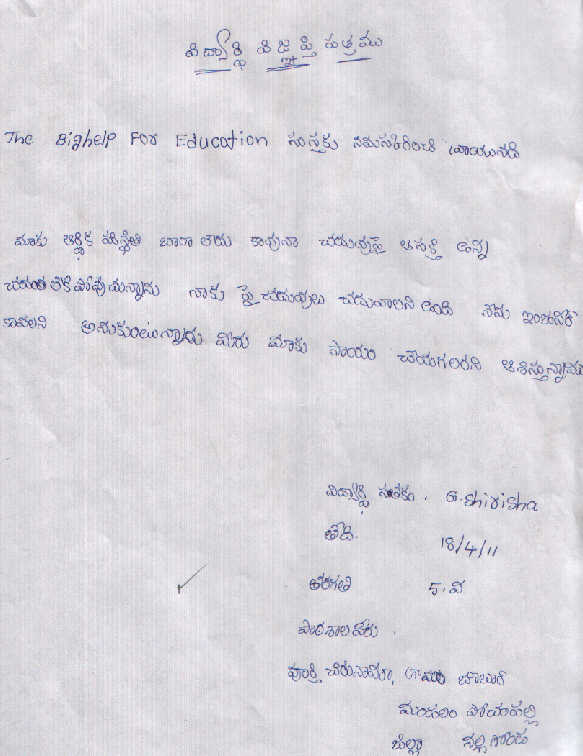 విద్యార్థి విజ్ఞప్తి పత్రము
The Bighelp For Education సంస్థకు నమస్కరించి వ్రాయునది
మాకు ఆర్థిక పరిస్థితి బాగా లేదు కావునా చదువుపై ఆసక్తి ఉన్న
చదువ లేక పోవుచున్నాను నాకు పై చదువులు చదువాలని ఉంది నేను ఇంజనీర్
కావాలని అనుకుంటున్నాను మీరు మాకు సాయం చేయగలరని ఆశిస్తున్నాము
విద్యార్థి సంతకం . G.Shirisha
తేది. 18/4/11
తరగతి 5.వ
పాఠశాల పేరు .
పూర్తి చిరునామా, గ్రామం
మండలం పోచంపల్లి
జిల్లా నల్లగొండ